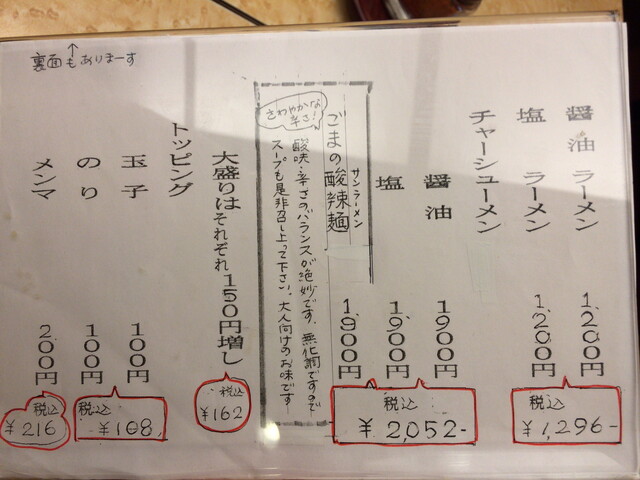 醤油ラーメン 1,200円
塩ラーメン 1,200円
税込 ¥1,296-
チャーシューメン
醤油 1,900円
塩 1,900円
サンラーメン
ごまの酸辣麺 1,900円
税込 ¥2,052-
さわやかな辛さ!
酸味・辛さのバランスが絶妙です。無化調ですので
スープも是非召し上って下さい。大人向けのお味です
大盛りはそれぞれ150円増し
税込 ¥162
トッピング
玉子 100円
のり 100円
税込 ¥108
メンマ 200円
税込 ¥216
裏面もありまーす